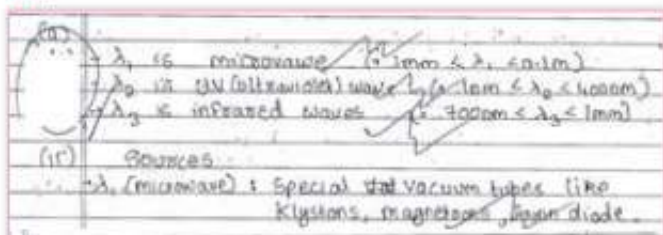 (a)
λ₁ is microwave (∵ 1mm < λ₁ < 0.1m)
λ₂ is UV (ultraviolet) wave (∵ 1nm < λ₂ < 400nm)
λ₃ is infrared waves (∵ 700nm < λ₃ < 1mm)
Sources
λ₁ (microwave) : Special vacuum tubes like
Klystons, magnetrons, diode.